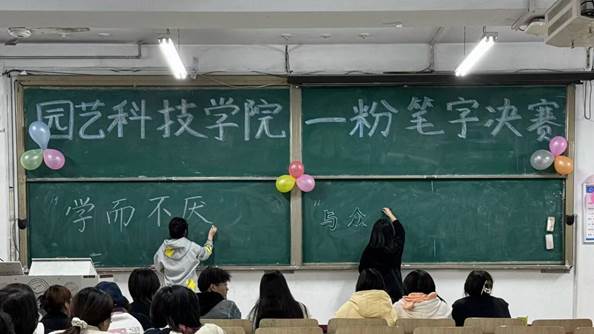 园艺科技学院
一粉笔字决赛
“学而不厌
“与众